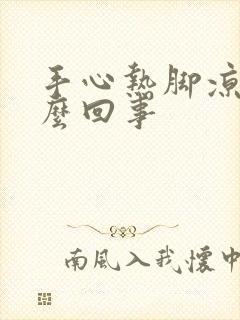 手心熱脚凉
麼回事
南風入我懷中